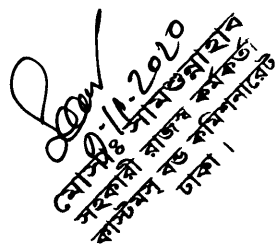 11.2020
মোসাঃ শামসুন্নাহার
সহকারী রাজস্ব কর্মকর্তা
কাস্টমস বন্ড কমিশনারেট
ঢাকা।